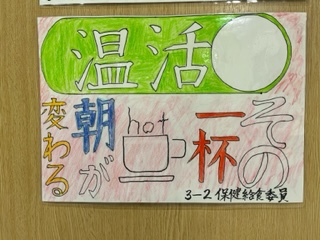 温活
その
一杯
hot
朝が
変わる
3-2 保健給食委員